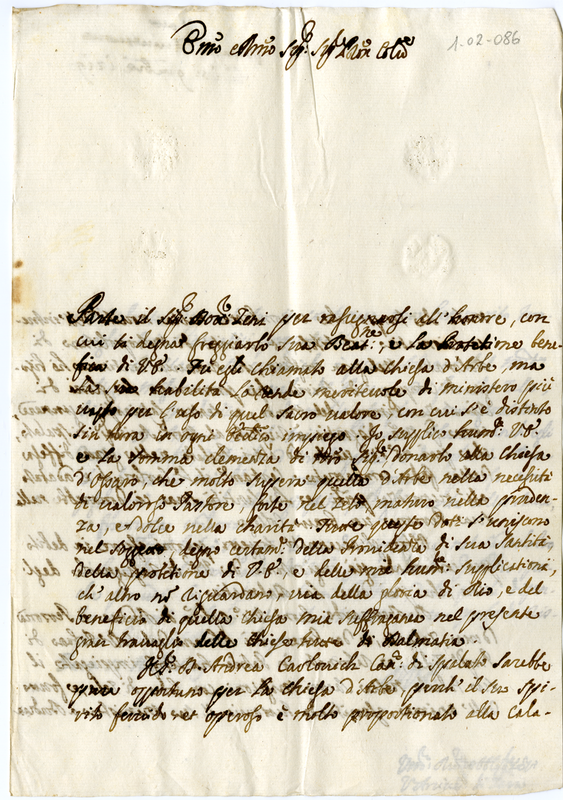 Emo e Rmo Sig. Sig. Pron Colmo
1-02-086
Parte il Sig. Don Zeni per rassegnarsi all' honore, con
cui si degna freggiarlo sua Beatne, e la Protetione bene-
fica di V.E. Fu egli chiamato alla Chiesa d'Arbe, ma
la sua habilità lo rende meritevole di ministero più
vasto per l'uso di quel sacro valore, con cui s'è distinto
sin hora in ogni impiego. Io supplico humte V.E.
e la somma clemenza di donarlo alla Chiesa
d'Ossaro, che molto supera quella d'Arbe nella necessità
di valoroso Pastore, forte nel zelo, maturo nella pruden-
za, e dolce nella charità. Tutte queste doti s'uniscono
nel soggetto, degno certamte della Providenza di sua Santità
della protetione di V.E., e delle mie humme supplicationi,
ch' altro no riguardano, che della gloria di Dio, e del
beneficio di quella Chiesa mia suffraganea nel presente
gran travaglio delle Chiese tutte di Dalmatia
D. Andrea Can: di Spalato sarebbe
pure opportuno per la Chiesa d'Arbe, perche il suo spi-
rito fervido et operoso è molto proportionato alla cala-